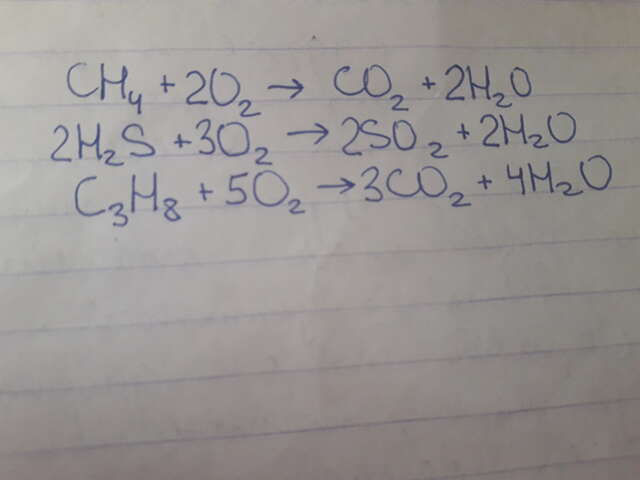 CH₄ + 2O₂ → CO₂ + 2H₂O
2H₂S + 3O₂ → 2SO₂ + 2H₂O
C₃H₈ + 5O₂ → 3CO₂ + 4H₂O